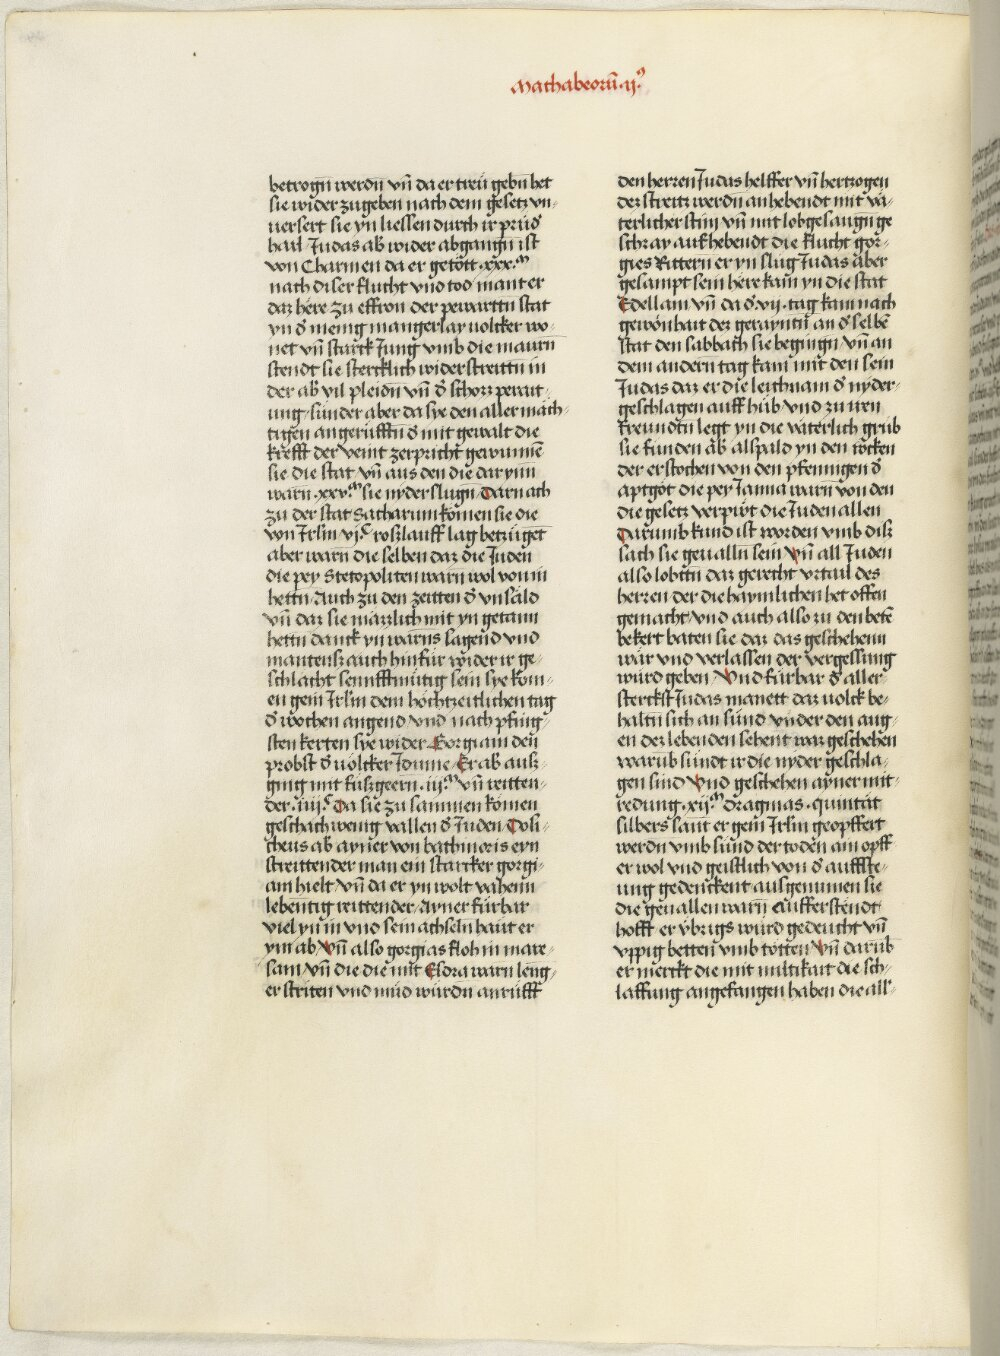 Mathabeorū·ij·⁹
betrogn̄ werdn̄ vn̄ da er treū gebn̄ het
sie wider zugeben nach dem gesetz vn-
versert sie yn liessen durch ir prud̄
hail Judas ab̄ wider abgangn̄ ist
von Charmen da er getött ·xxx·ᵐ
nach diser flucht vnd tod mant er
daz here zu effron der pewarttn̄ stat
yn d̄ menig mangerlay volcker wo-
net vn̄ starck Jung vmb die maurn̄
stendt sie stercklich widerstreittn̄ in
der ab̄ vil pleidn̄ vn̄ d̄ schozz perait-
ung sunder aber da sye den aller mäch-
tigen angerufftn̄ d̄ mit gewalt die
krefft der veint zerpricht gewunnē
sie die stat vn̄ aus den die dar ynn
warn ·xxv·ᵐ sie nyder slugn̄ Darnach
zu der stat Satharum komen sie die
von Irslm̄ vjᶜ roszlauff lag betzuget
aber warn̄ die selben daz die Juden
die pey Stetopoliten warn̄ wol von in
hettn̄ Auch zu den zeitten d̄ vnsäld
vn̄ daz sie mäzzlich mit yn getann
hettn̄ danck yn warns sagend vnd
mantens auch hinfür wider ir ge-
schlacht sennfftmütig sein sye kom-
en gein Irslm̄ dem hochtzeitlichen tag
d̄ wochen angend vnd nach pfing-
sten kerten sye wider Gorgiam den
probst d̄ völcker Jdume Er ab̄ ausz-
ging mit fuszgeern ·iijᵐ vn̄ reitten-
der ·iiijᶜ Da sie zu sammen komen
geschach wenig vallen d̄ Juden Dosi-
theus ab̄ ayner von bathmoris eyn
streittender man ein starcker gorgi-
am hielt vn̄ da er yn wolt vahenn
lebentig reittender Ayner fürbar
viel yn in vnd sein achseln haut er
ym ab vn̄ also gorgias floh in mare-
sam vn̄ die die mit Esdra warn leng-
er striten vnd müd wurdn anrüfft
den herren Judas helffer vn̄ hertzogen
dez streitz werdn anhebendt mit vä-
terlicher stim vn̄ mit lobgesangn̄ ge
schray aufhebendt die flucht gor-
gies Rittern er yn slug Judas aber
gesampt sein here kam yn die stat
Edellam vn̄ da d̄ ·vij· tag kam nach
gewonhait dez gerayntn̄ an d̄ selbē
stat den sabbath sie begingn̄ vn̄ an
dem andern tag kam mit den sein
Judas daz er die leichnam d̄ nyder-
geschlagen auff hub vnd zu iren
freundtn legt yn die väterlich grüb
sie funden ab̄ alspald yn den röcken
der erstochen von den pfenningen d̄
aptgöt die pey Jamia warn von den
die gesetz verpiwt die Juden allen
Darumb kund ist worden vmb disz
sach sie geualln sein vn̄ all Juden
also lobttn̄ daz gerecht vrtail des
herzen der die haymlichen het offen
gemacht vnd auch also zu den betē
bekert baten sie daz das geschehenn
wär vnd verlassen der vergessung
würd geben Vnd fürbar d̄ aller
sterckst Judas manett daz volck be-
haltn̄ sich an sünd vnder den aug-
en dez lebenden sehent waz geschehen
warub̄ sündt ir die nyder geschla-
gen sind Vnd geschehen ayner mit-
redung ·xijᵐ dragmas · quintät
silbers sant er gein Irslm̄ geopffert
werdn vmb sünd der todēn am opff-
er wol vnd geistlich von d̄ aufferste-
ung gedenckent ausgenumen sie
die geuallen warn̄ aufferstendt
hofft er vbrigs würd gedeucht vn̄
vppig betten vmb totten vn̄ darub̄
er merckt die mit miltikait die sch-
laffung angefangen haben die all-